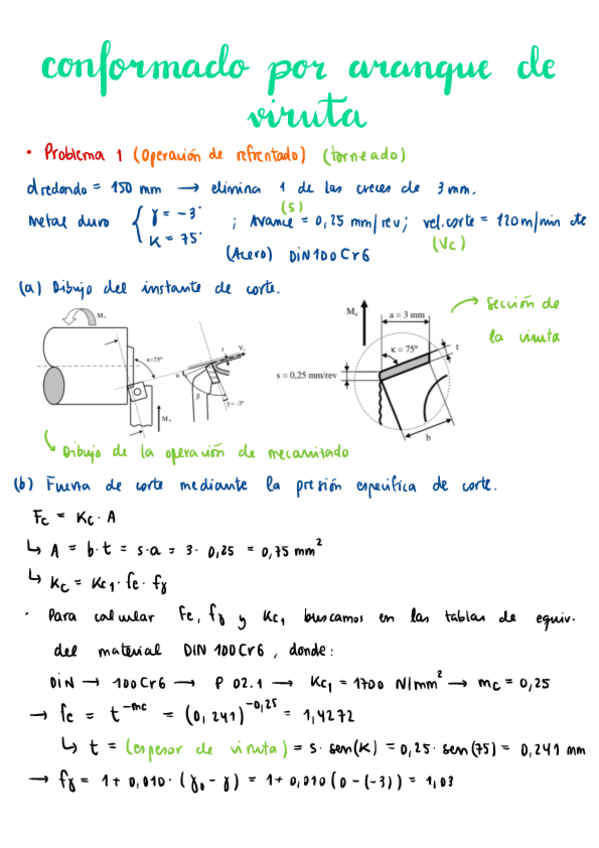 conformado por aranque de
viruta
• Problema 1 (operación de refrentado) (torneado)
dredondo = 150 mm → elimina 1 de las creces de 3 mm.
(S)
Metal duro { γ = -3° ; Avance = 0,25 mm/rev; vel. corte = 120 m/min de
K = 75°
(Vc)
(Acero) DiN 100 Cr 6
(a) Dibujo del instante de corte.
a = 3 mm
→ Sección de
la viruta
κ=75°
κ = 75°
t
s = 0,25 mm/rev
γ = -3°
b
↳ Dibujo de la operación de mecanizado
(b) Fuerza de corte mediante la presión específica de corte.
Fc = Kc · A
↳ A = b·t = s·a = 3 · 0,25 = 0,75 mm²
↳ Kc = Kc1 · fe · fγ
· Para calcular fe, fγ y Kc1 buscamos en las tablas de equiv.
del material DIN 100Cr6, donde:
DiN → 100Cr6 → P 02.1 → Kc1 = 1700 N/mm² → mc = 0,25
→ fe = t^-mc = (0,241)^-0,25 = 1,4272
↳ t = (espesor de viruta) = s · sen(K) = 0,25 · sen(75) = 0,241 mm
→ fγ = 1 + 0,010 · (γ0 - γ) = 1 + 0,010 (0 - (-3)) = 1,03